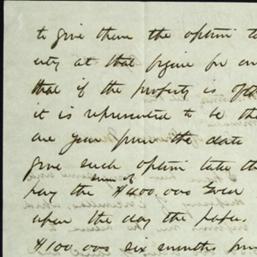 to give them the option to
at that figure for one
that if the property is
it is represented to be the
one year from the date
give such option take the
pay the sum of $400.000
upon the day the
$100.000 six months from